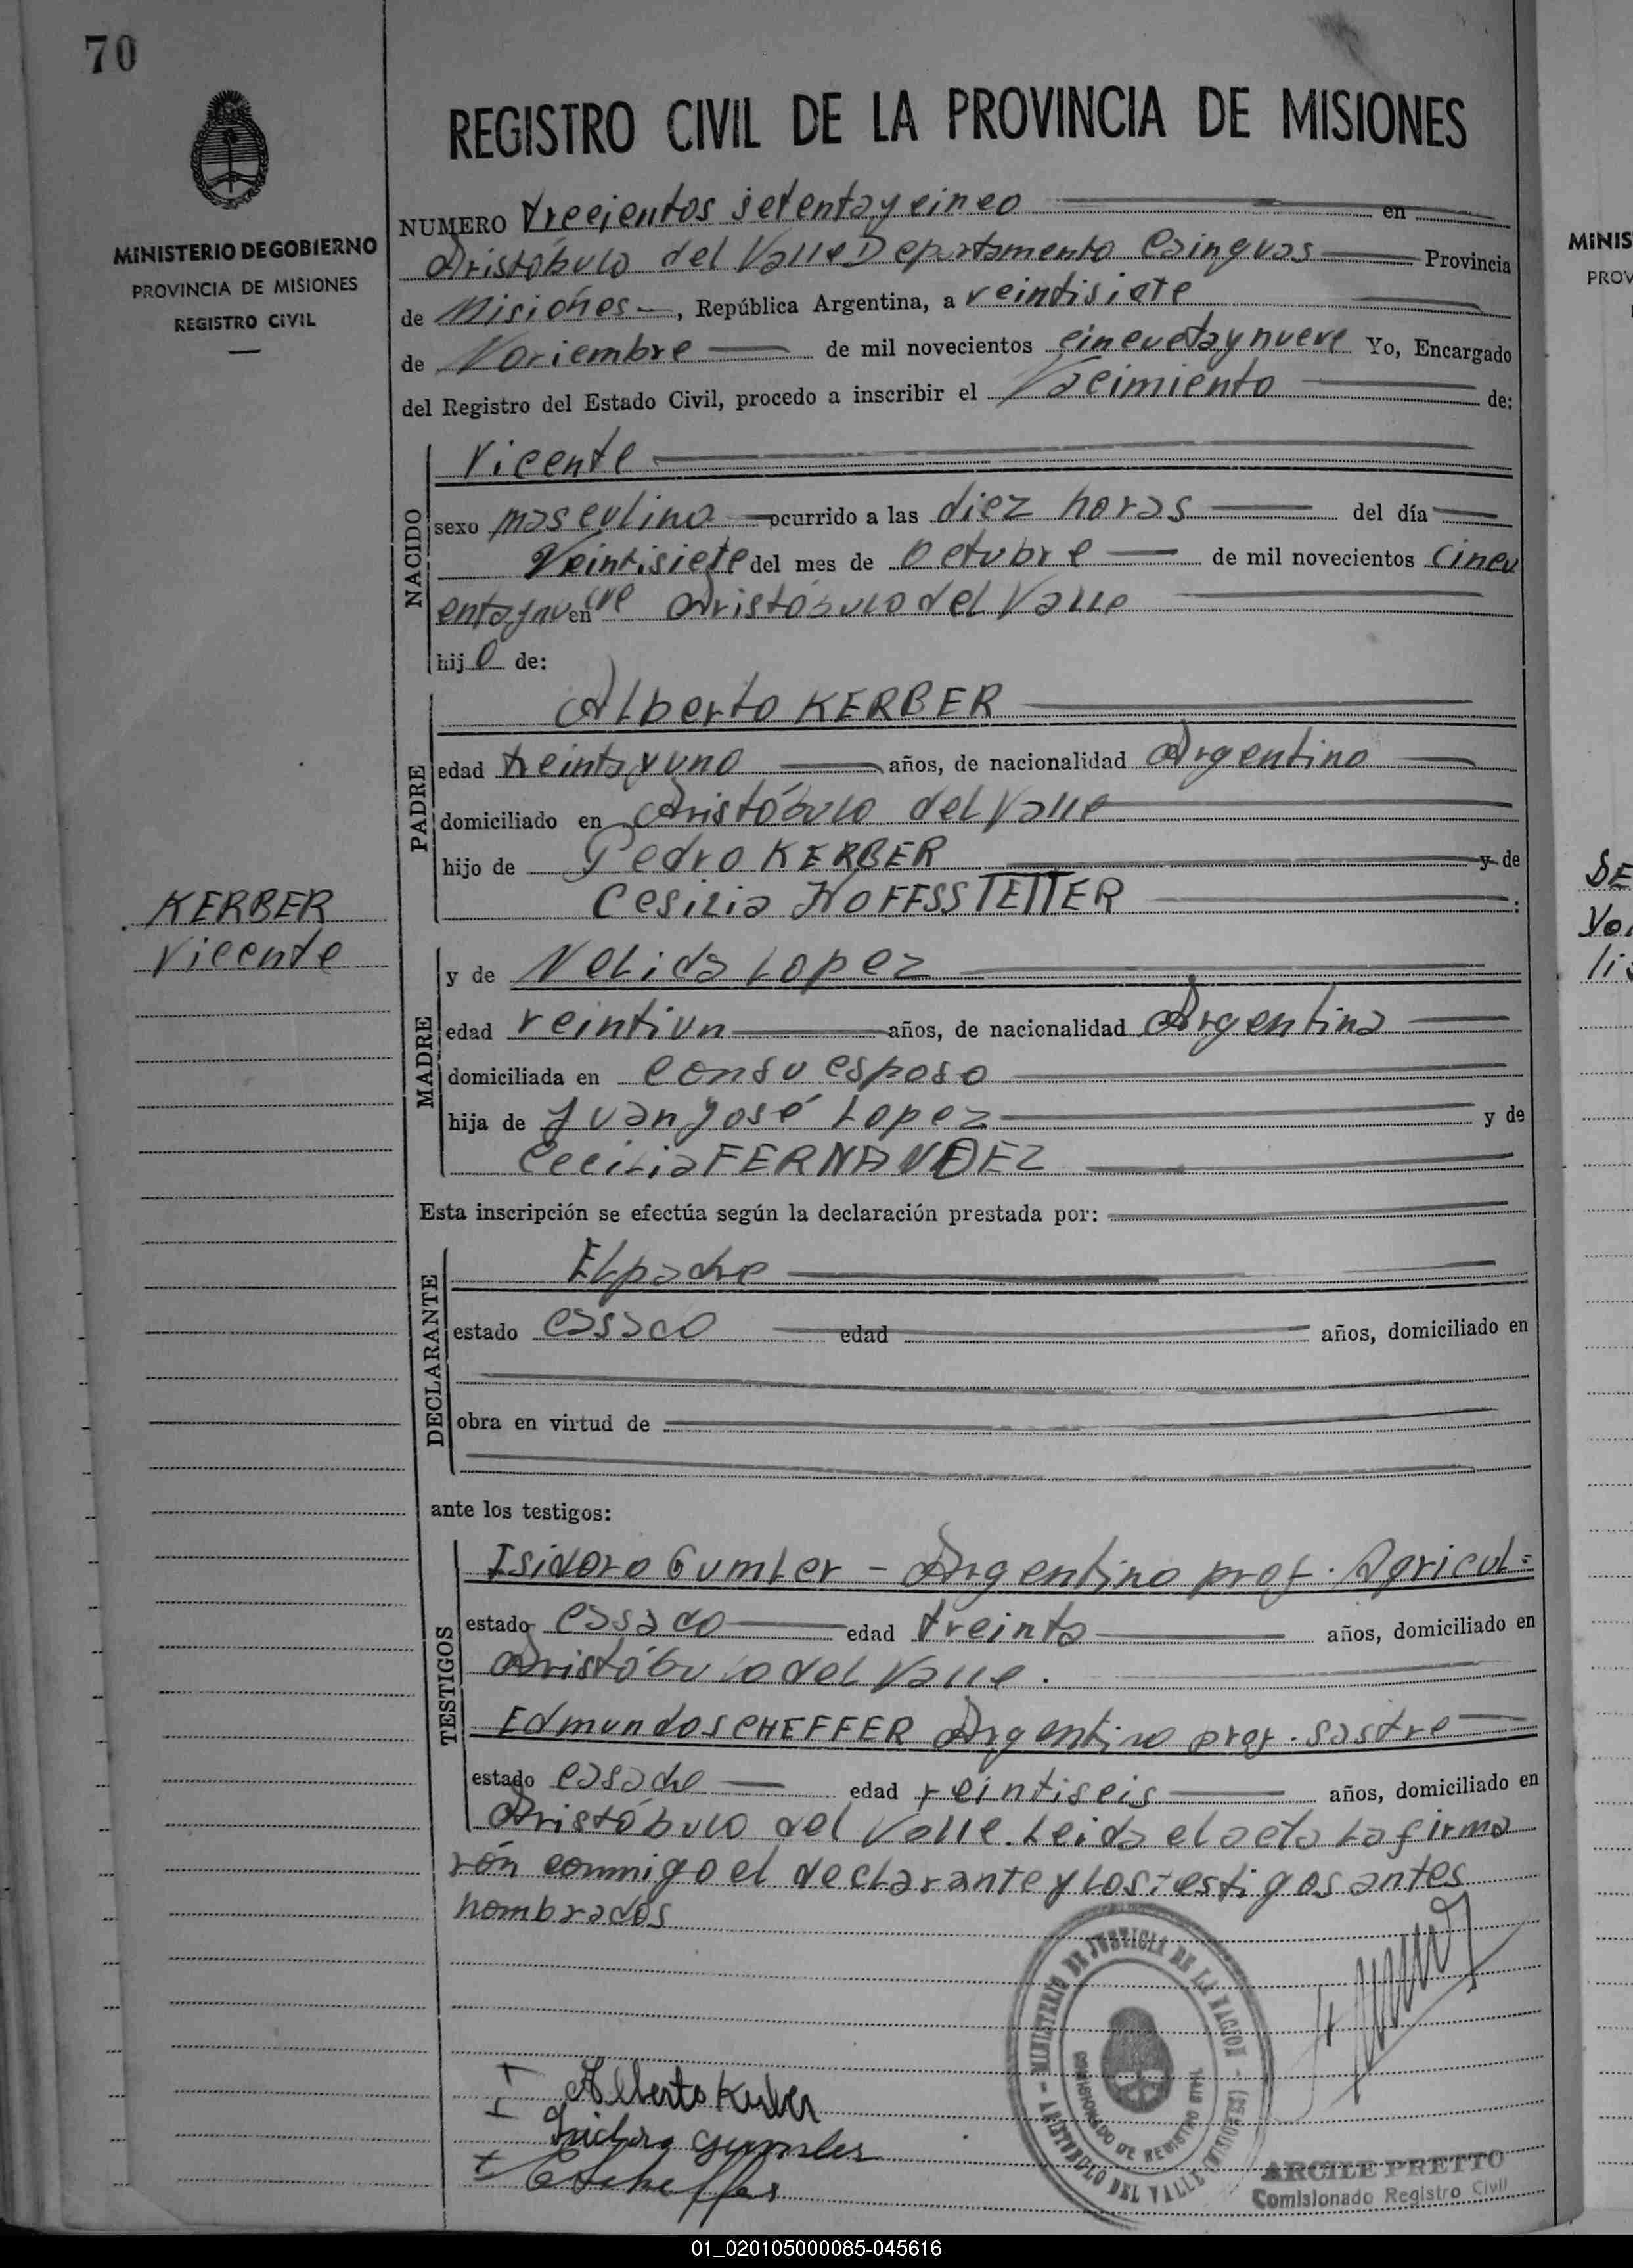 70
REGISTRO CIVIL DE LA PROVINCIA DE MISIONES
MINISTERIO DE GOBIERNO
PROVINCIA DE MISIONES
REGISTRO CIVIL
NUMERO trecientos setentaycinco en
Aristóbulo del Valle Departamento Cainguas Provincia
de Misiónes, República Argentina, a veintisiete
de Noviembre de mil novecientos cincuetaynueve Yo, Encargado
del Registro del Estado Civil, procedo a inscribir el Nacimiento de:
NACIDO
Vicente
sexo masculino ocurrido a las diez horas del día
Veintisiete del mes de Octubre de mil novecientos cincu
entaynueve en Aristóbulo del Valle
hijo de:
PADRE
Alberto KERBER
edad treintayuno años, de nacionalidad Argentino
domiciliado en Aristóbulo del Valle
hijo de Pedro KERBER y de
Cesilia HOFFSSTETTER :
KERBER
Vicente
MADRE
y de Nelida Lopez
edad veintiun años, de nacionalidad Argentina
domiciliada en con su esposo
hija de Juan José Lopez y de
Cecilia FERNANDEZ
Esta inscripción se efectúa según la declaración prestada por:
DECLARANTE
El padre
estado casado edad años, domiciliado en
obra en virtud de
ante los testigos:
TESTIGOS
Isidoro Gumler - Argentino prof. Agricul=
estado casado edad treinta años, domiciliado en
Aristóbulo del Valle.
Edmundo SCHEFFER Argentino prof. sastre
estado casado edad veintiseis años, domiciliado en
Aristóbulo del Valle. Leida el acta la firma
rón conmigo el declarante y los testigos antes
nombrados
MINISTERIO DE JUSTICIA DE LA NACION
ARISTOBULO DEL VALLE (MISIONES)
COMISIONADO DE REGISTRO CIVIL
Alberto Kerber
Isidoro Gumler
E Scheffer
ARCILE PRETTO
Comisionado Registro Civil
MINIS
PROV
01_020105000085-045616